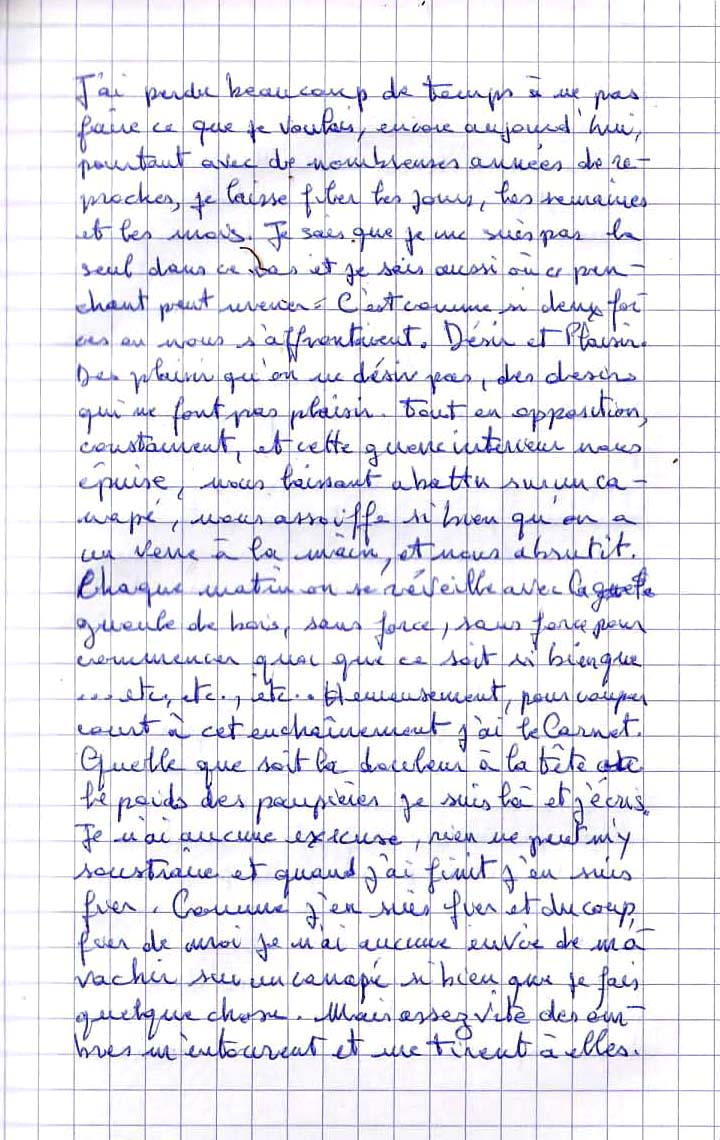 J'ai perdu beaucoup de temps à ne pas
faire ce que je voulais, encore aujourd'hui,
pourtant avec de nombreuses années de re-
proches, je laisse filer les jours, les semaines
et les mois. Je sais que je ne suis pas le
seul dans ce cas et je sais aussi où ce pen-
chant peut mener. C'est comme si deux for
ces en nous s'affrontaient. Désir et Plaisir.
Des plaisir qu'on ne désir pas, des desirs
qui ne font pas plaisir. Tout en opposition,
constament, et cette guerre interieur nous
épuise, nous laissant abattu sur un ca-
napé, nous assoiffe si bien qu'on a
un verre à la main, et nous abrutit.
Chaque matin on se réveille avec la
gueule de bois, sans force, sans force pour
commencer quoi que ce soit si bien que
... etc, etc., etc.. Heureusement, pour couper
court à cet enchaînement j'ai le Carnet.
Quelle que soit la douleur à la tête
le poids des paupières je suis là et j'écris.
Je n'ai aucune excuse, rien ne peut m'y
soustraire et quand j'ai finit j'en suis
fier. Comme j'en suis fier et du coup,
fier de moi je n'ai aucune envie de m'a
vachir sur un canapé si bien que je fais
quelque chose. Mais assez vite des om-
bres m'entourent et me tirent à elles.